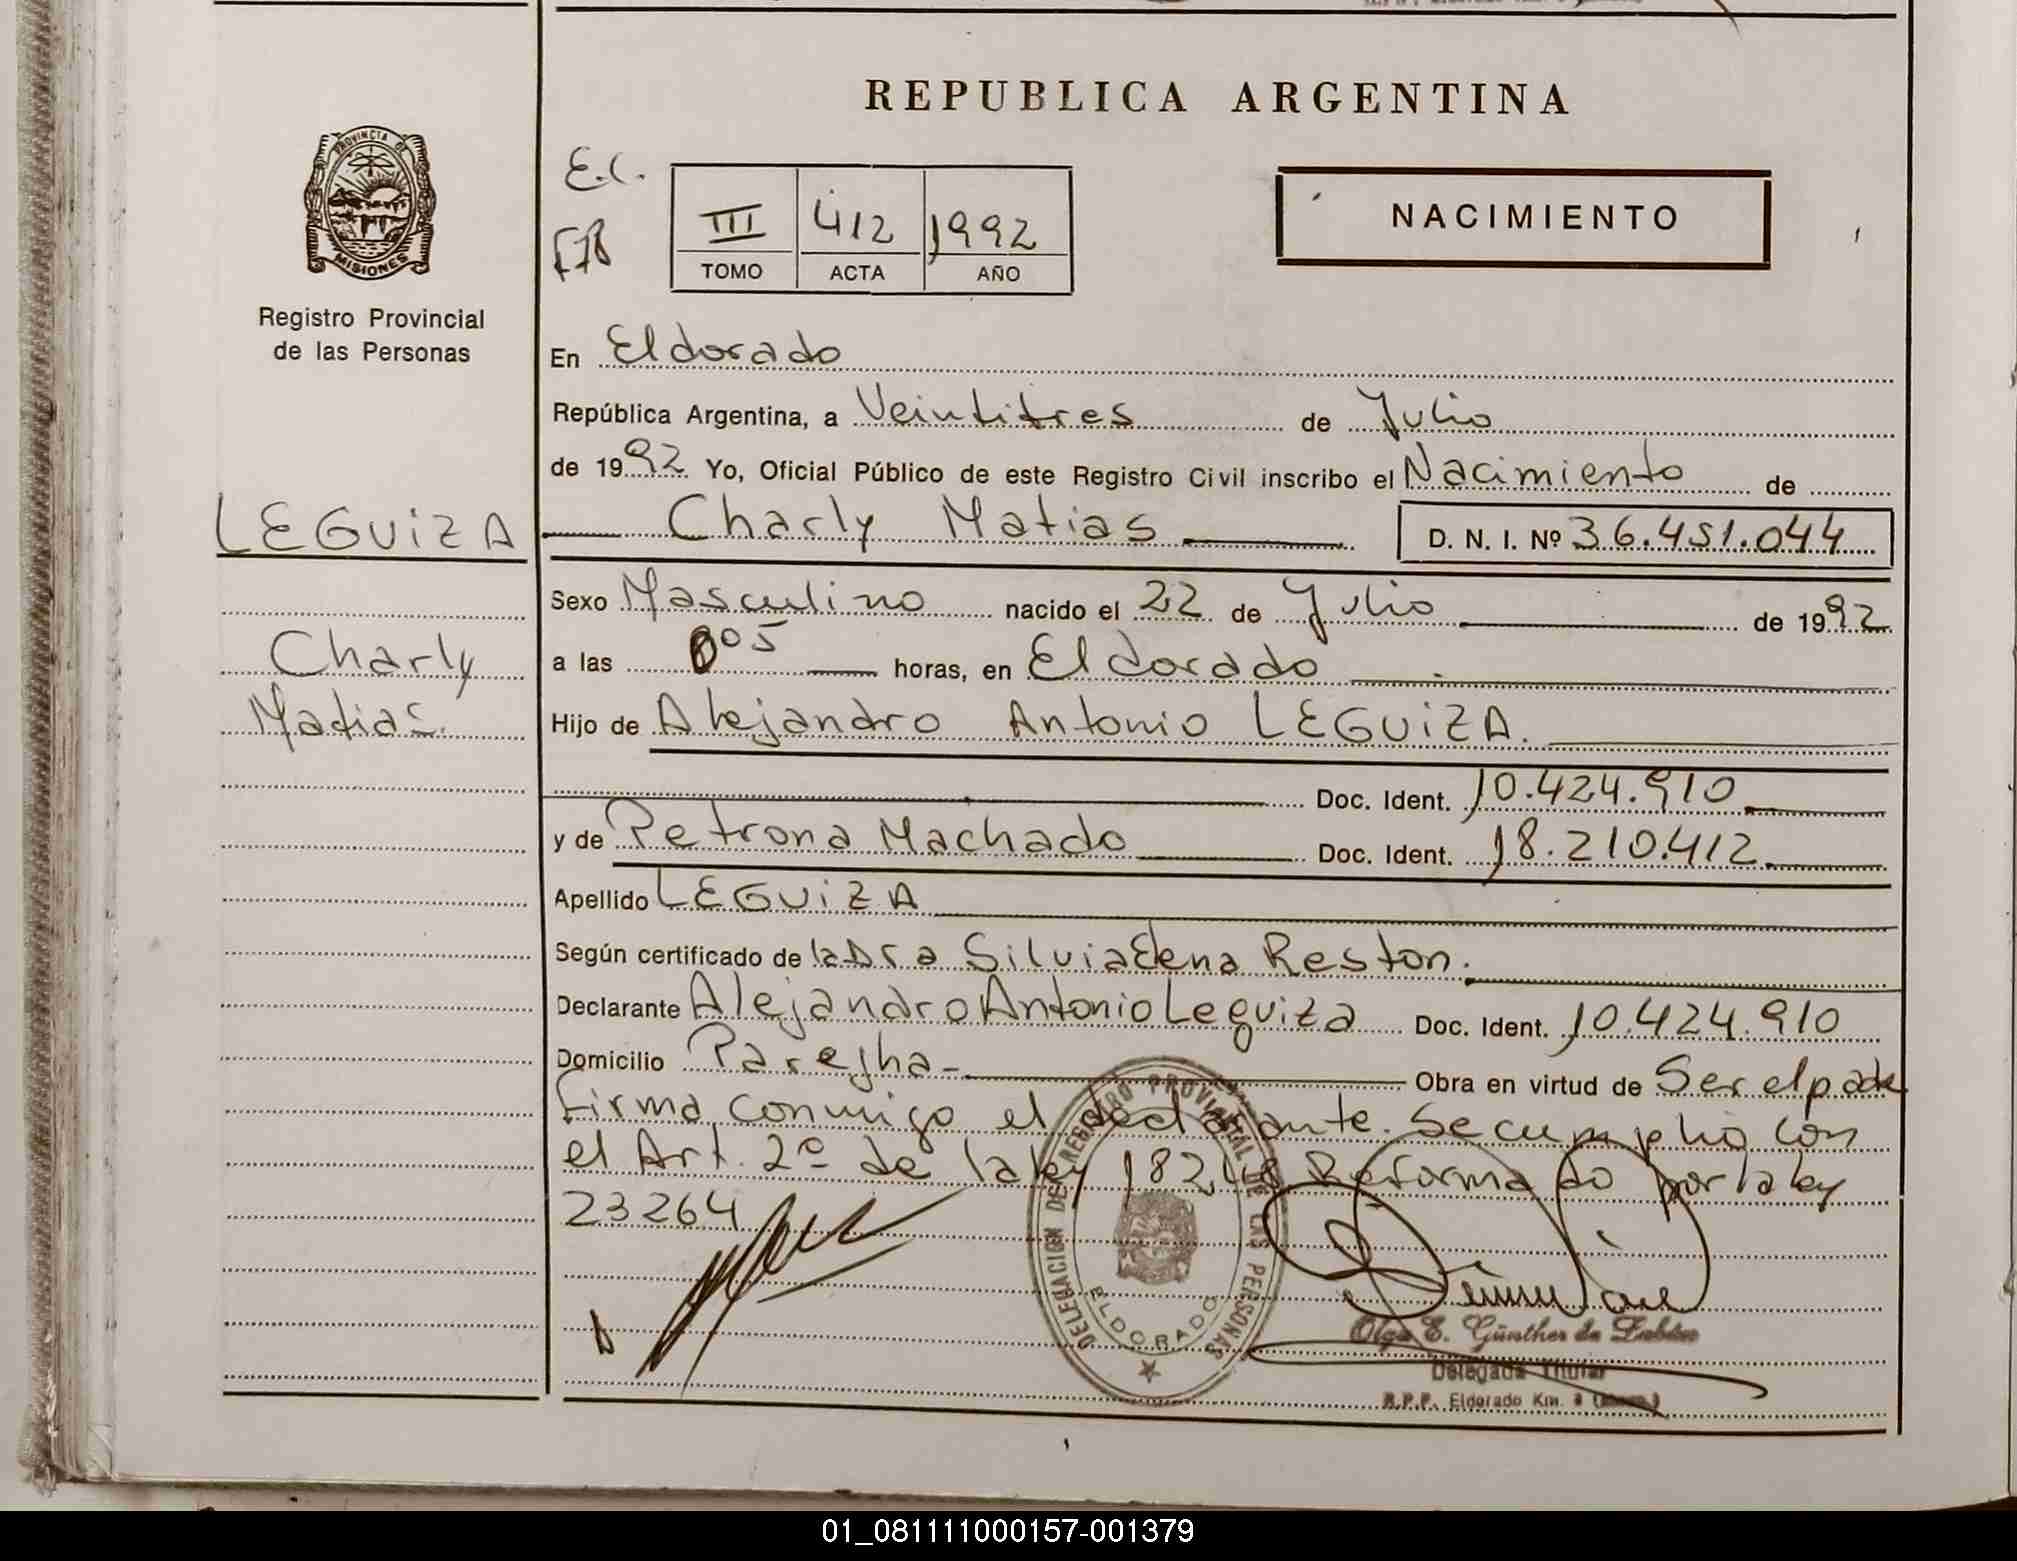 REPUBLICA ARGENTINA
PROVINCIA DE
MISIONES
Registro Provincial
de las Personas
E.C.
III 412 1992
TOMO ACTA AÑO
NACIMIENTO
En Eldorado
República Argentina, a Veintitres de Julio
de 1992 Yo, Oficial Público de este Registro Civil inscribo el Nacimiento de
LEGUiZA
Charly Matias D. N. I. Nº 36.451.044
Sexo Masculino nacido el 22 de Julio de 1992
Charly
Matias
a las 0 05 horas, en Eldorado
Hijo de Alejandro Antonio LEGUiZA.
Doc. Ident. 10.424.910
y de Petrona Machado Doc. Ident. 18.210.412
Apellido LEGUiZA
Según certificado de la Dra Silvia Elena Reston.
Declarante Alejandro Antonio Leguiza Doc. Ident. 10.424.910
Domicilio Parejha - Obra en virtud de Ser el padre
firma conmigo el declarante. Se cumplio con
el Art. 2º de la ley 18248 Reformado por la ley
23264
DELEGACION DEL REGISTRO PROVINCIAL DE LAS PERSONAS
ELDORADO
Olga E. Günther de
Delegada Titular
R.P.P. Eldorado Km.
01_081111000157-001379